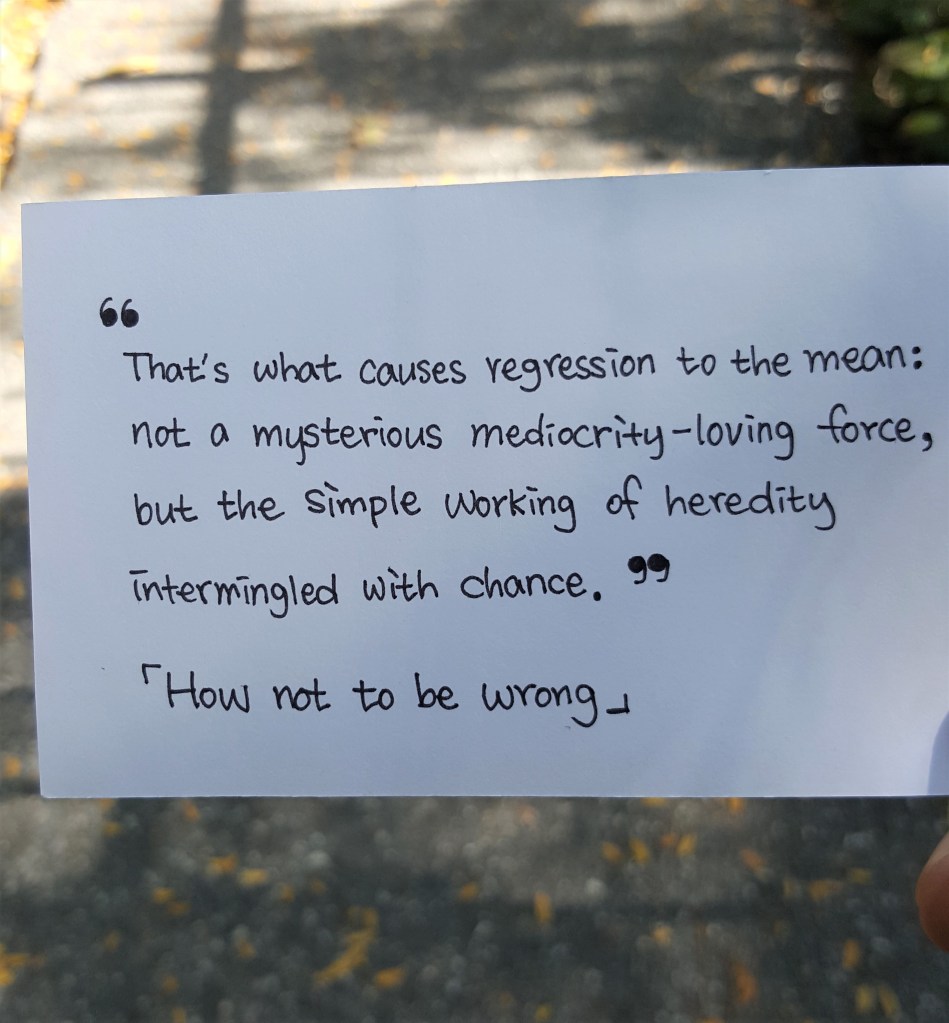 “
That's what causes regression to the mean:
not a mysterious mediocrity-loving force,
but the simple working of heredity
intermingled with chance. ”
「How not to be wrong」